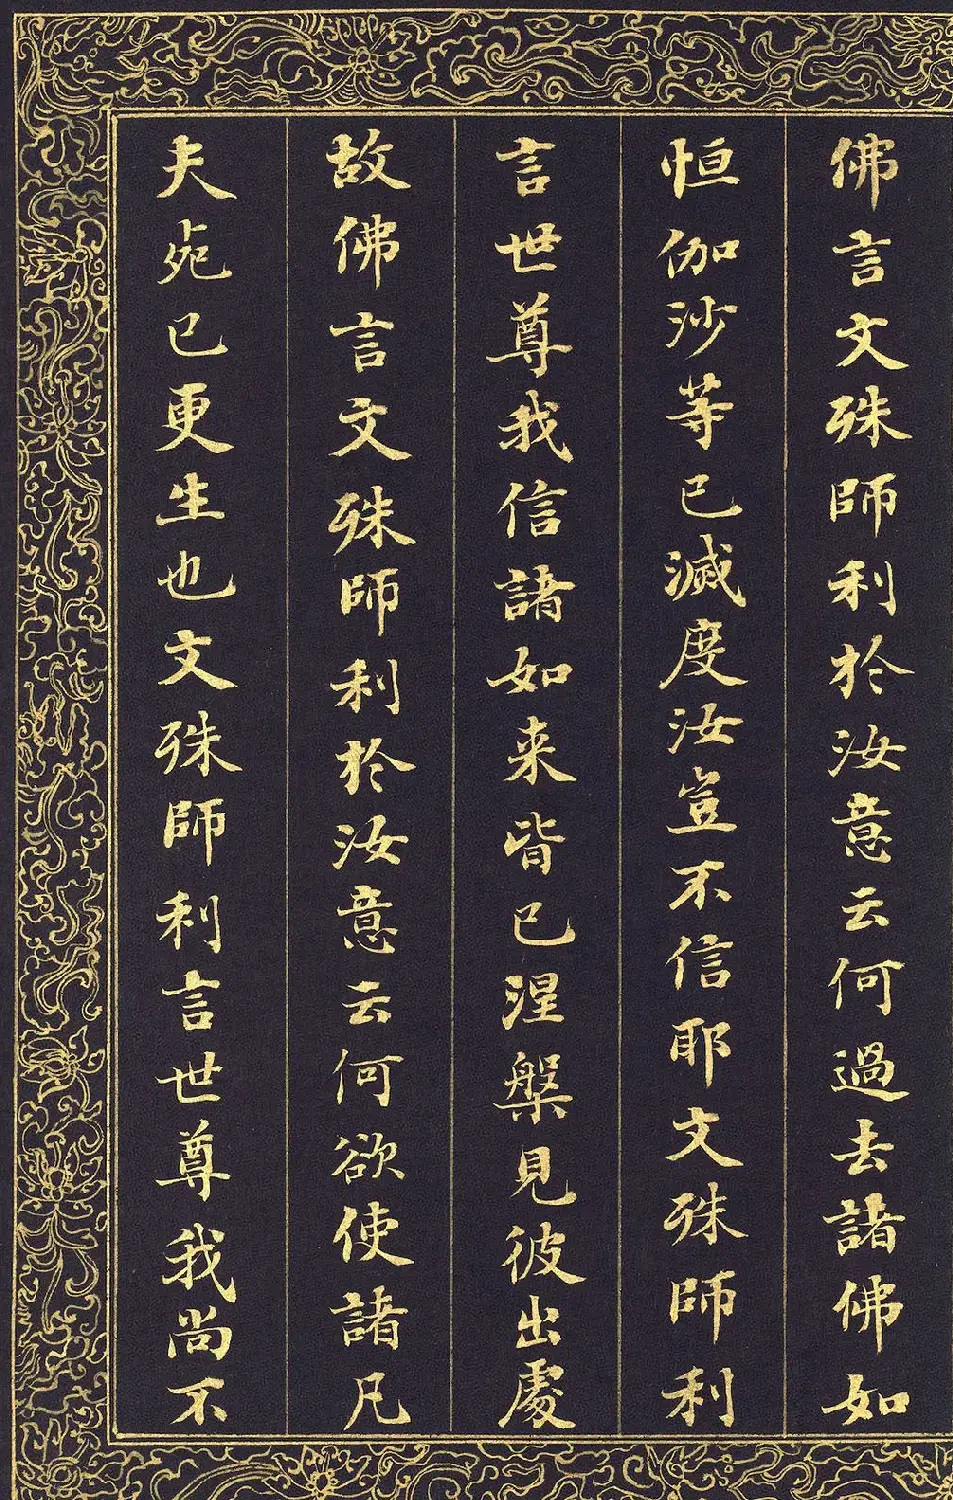 佛言文殊師利於汝意云何過去諸佛如
恒伽沙等已滅度汝豈不信耶文殊師利
言世尊我信諸如来皆已涅槃見彼出處
故佛言文殊師利於汝意云何欲使諸凡
夫死已更生也文殊師利言世尊我尚不